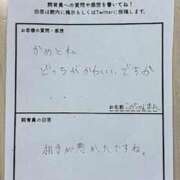 飼育員への質問や感想を書いてね!
回答は館内に掲示もしくはTwitterに投稿します。
お客様の質問・感想
かめとね
どっちがかわいいですか
お名前
さん
飼育員の回答
相手が悪かったですね。